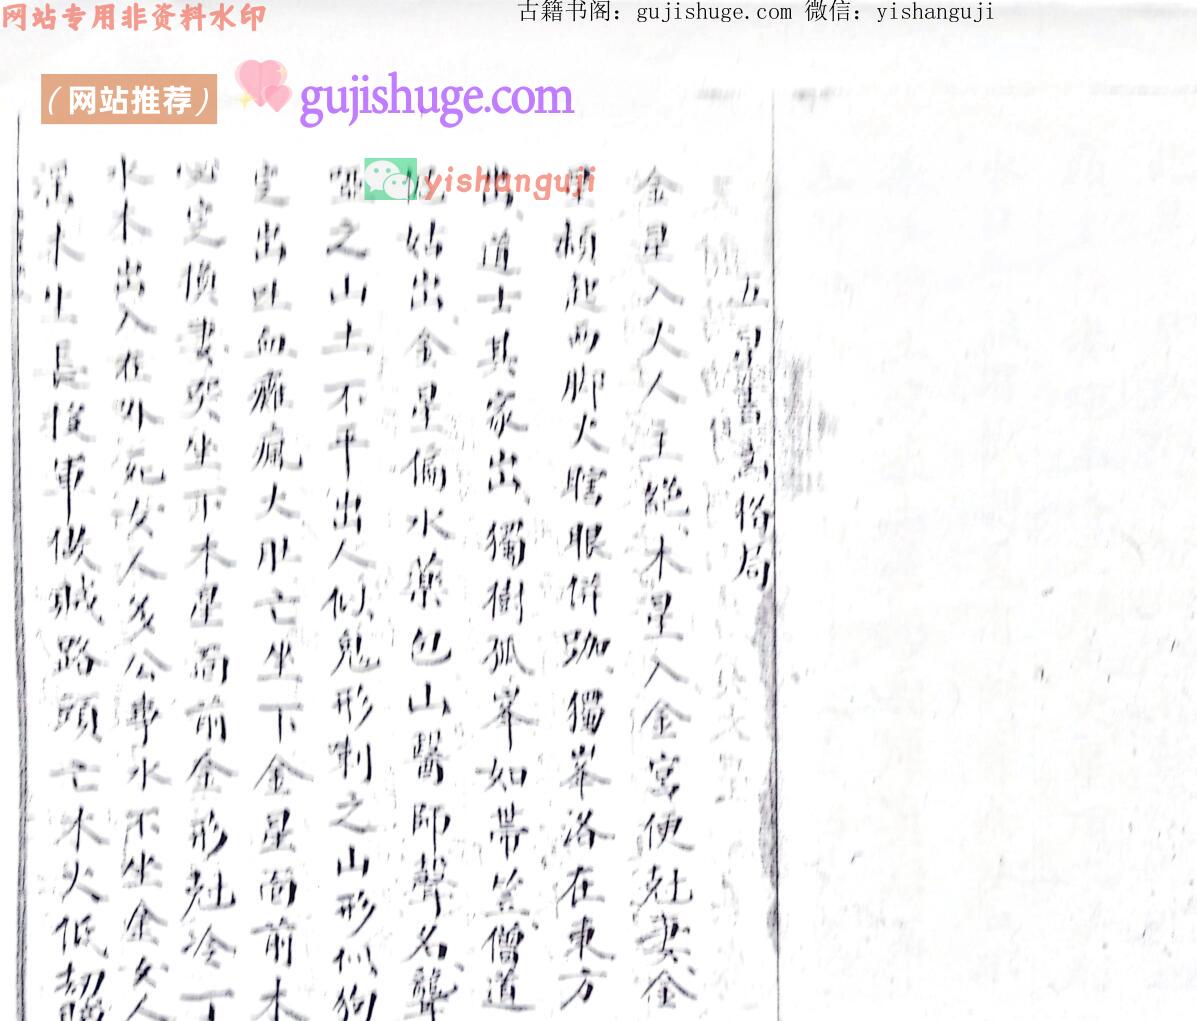 网站专用非资料水印
古籍书阁：gujishuge.com 微信：yishanguji
（网站推荐）
gujishuge.com
yishanguji
五星書局
金星入火人主絕木星入金宮便尅妻金
頼起兩脚火瞎眼併跏獨峯洛在東方
出道士其家出獨樹孤峯如帶笠僧道
姑出金星偏水藥包山醫師聲名聾
之山土不平出人似鬼形喇之山形似狗
定出吐血癱瘋火形亡坐下金星面前木
必定損妻哭坐下木星面前金形尅冷丁
水木出入在外死女人多公事水不坐金女人
木生長後軍做賊路頭亡木火低